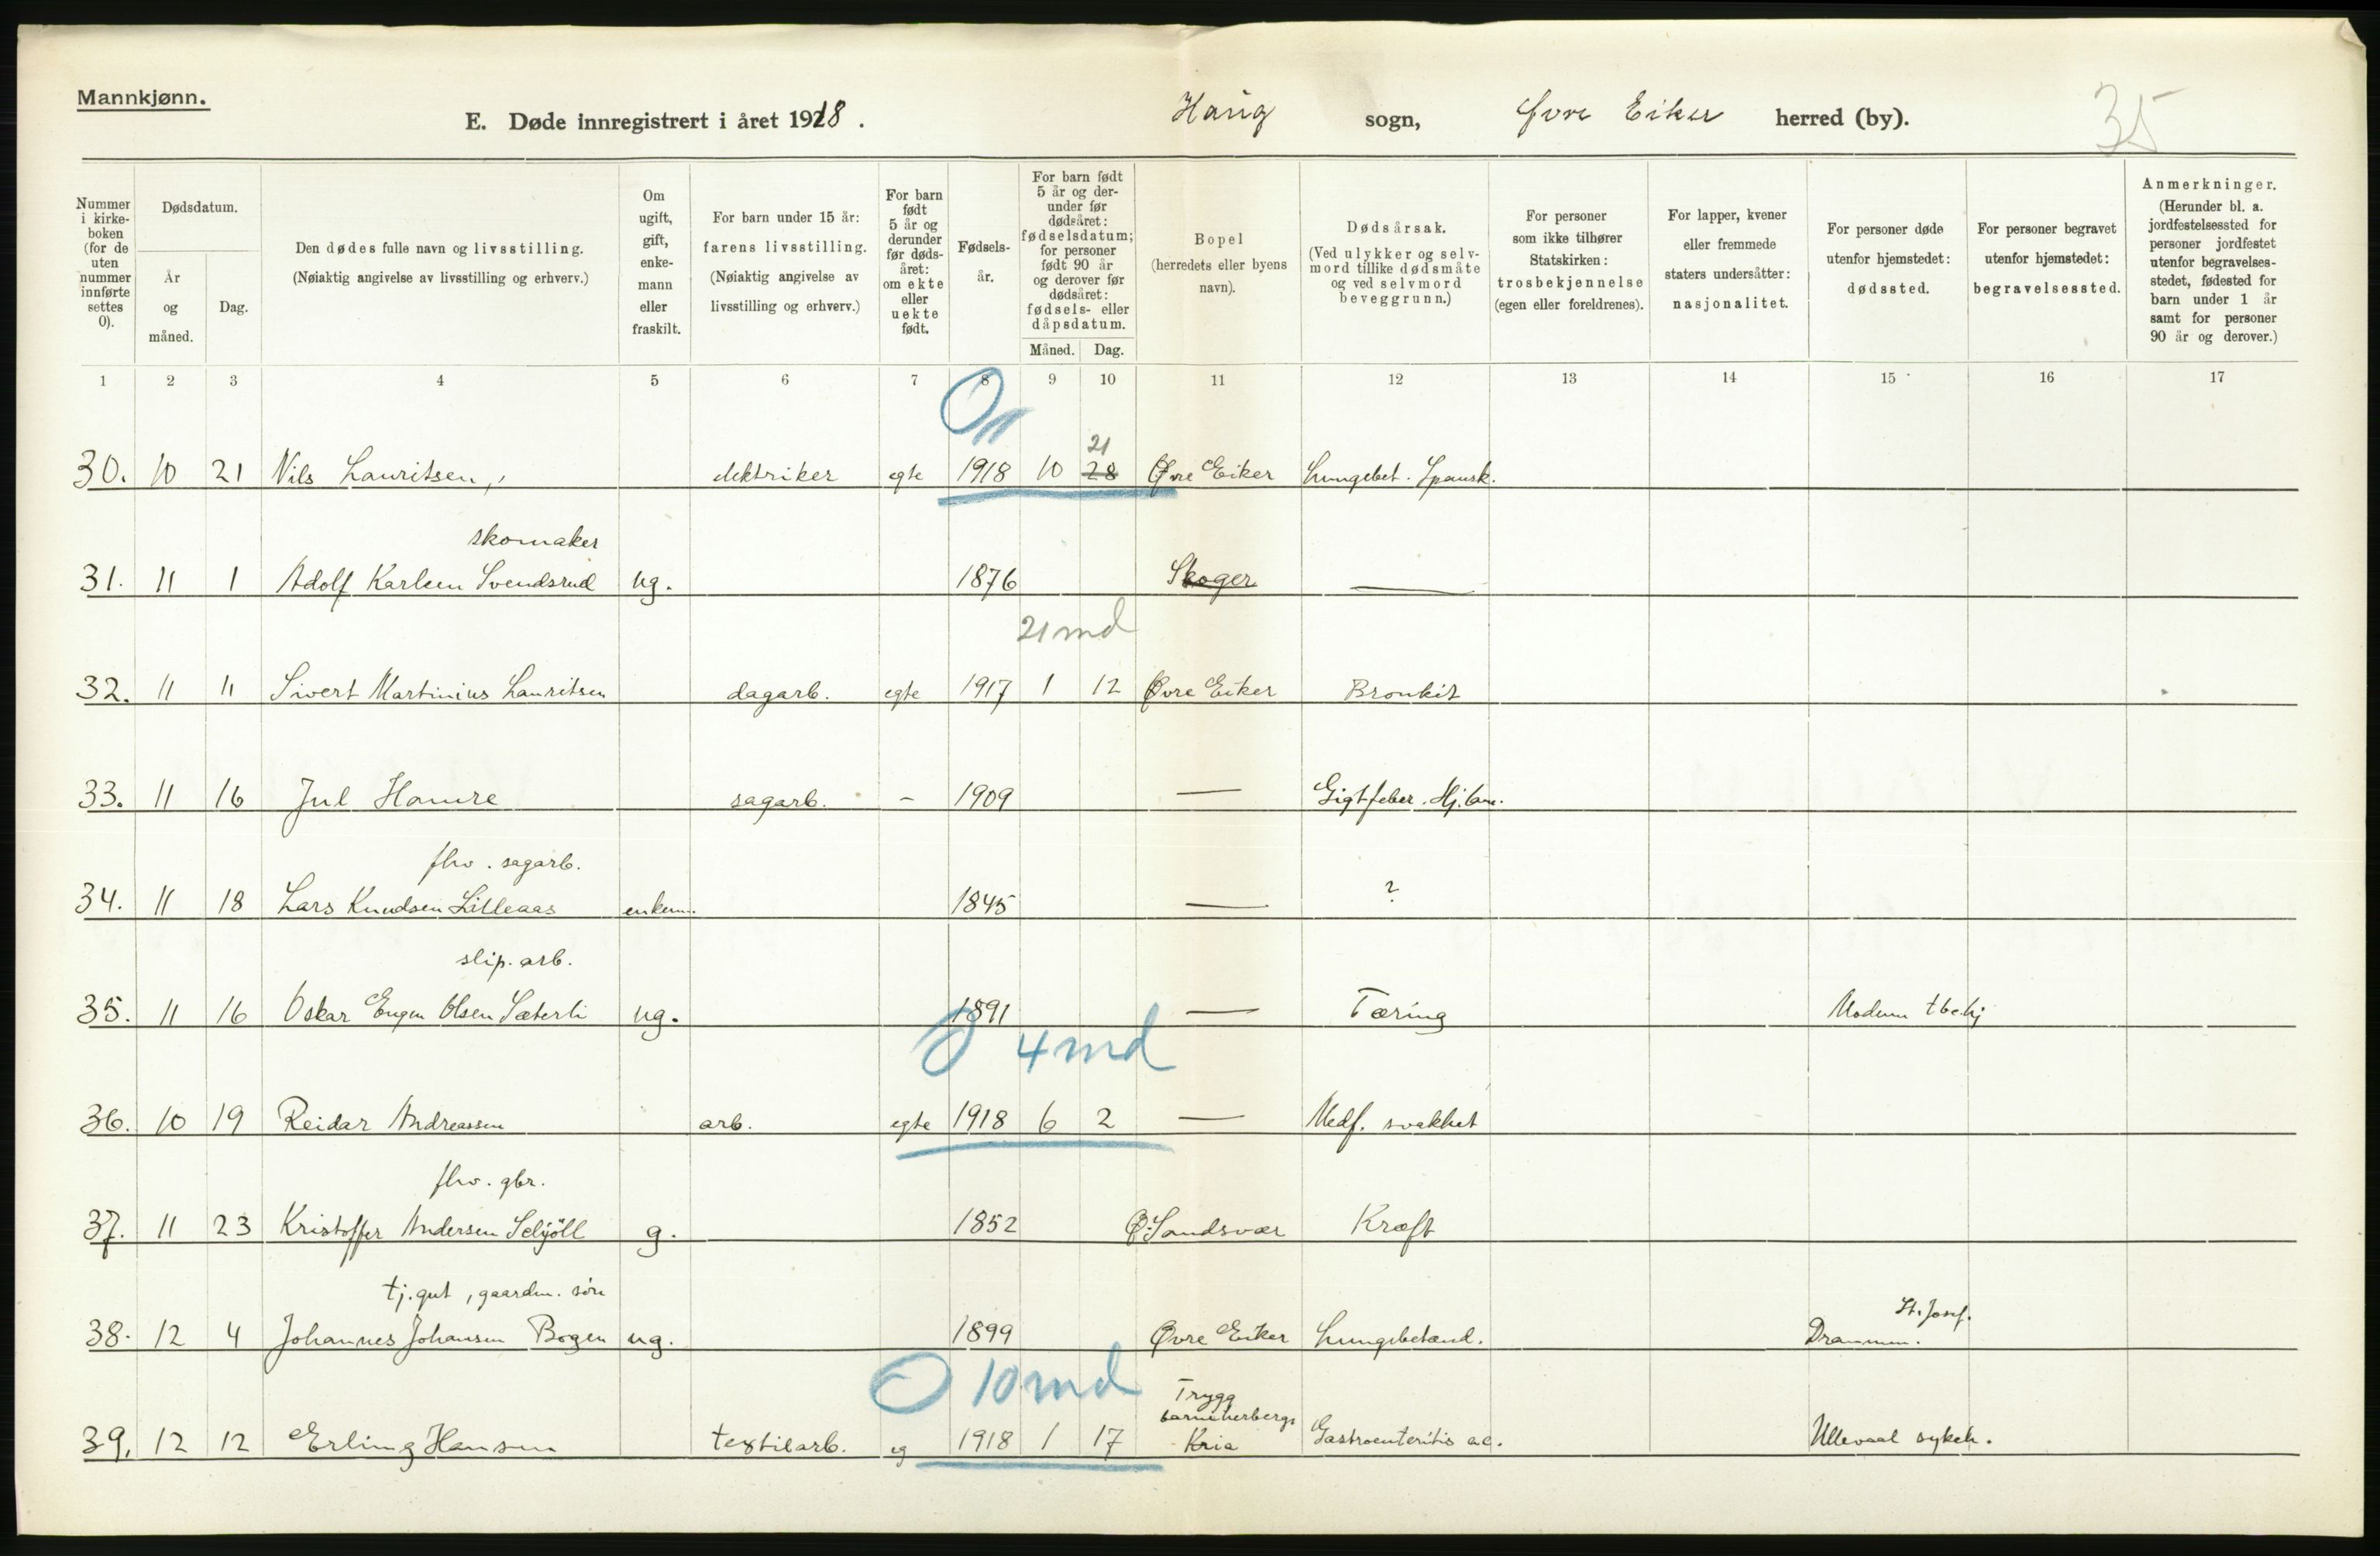 Mannkjønn.
E. Døde innregistrert i året 1918. Haug sogn, Øvre Eiker herred (by). 35
Nummer i kirkeboken (for de uten nummer innførte settes 0).
Dødsdatum.
År og måned.
Dag.
Den dødes fulle navn og livsstilling.
(Nøiaktig angivelse av livsstilling og erhverv.)
Om ugift, gift, enkemann eller fraskilt.
For barn under 15 år: farens livsstilling.
(Nøiaktig angivelse av livsstilling og erhverv.)
For barn født 5 år og derunder før dødsåret: om ekte eller uekte født.
Fødselsår.
For barn født 5 år og derunder før dødsåret: fødselsdatum; for personer født 90 år og derover før dødsåret: fødsels- eller dåpsdatum.
Måned. Dag.
Bopel (herredets eller byens navn).
Dødsårsak.
(Ved ulykker og selvmord tillike dødsmåte og ved selvmord beveggrunn.)
For personer som ikke tilhører Statskirken: trosbekjennelse (egen eller foreldrenes).
For lapper, kvener eller fremmede staters undersåtter: nasjonalitet.
For personer døde utenfor hjemstedet: dødssted.
For personer begravet utenfor hjemstedet: begravelsessted.
Anmerkninger.
(Herunder bl. a. jordfestelsessted for personer jordfestet utenfor begravelsesstedet, fødested for barn under 1 år samt for personer 90 år og derover.)
1 2 3 4 5 6 7 8 9 10 11 12 13 14 15 16 17
21
30. 10 21 Nils Lauritsen, elektriker egte 1918 10 28 Øvre Eiker Lungebet. Spansk.
skomaker
31. 11 1 Adolf Karlsen Svendsrud ug. 1876 Skoger —
21 md
32. 11 11 Sivert Martinius Lauritsen dagarb. egte 1917 1 12 Øvre Eiker Bronkit
33. 11 16 Jul Hamre sagarb. - 1909 — Gigtfeber.
fhv. sagarb.
34. 11 18 Lars Knudsen Lilleaas enkem. 1845 — ?
slip. arb.
35. 11 16 Oskar Eugen Olsen Sæterli ug. 1891 — Tæring Modum tbc.hj
0 4 md
36. 10 19 Reidar Andreassen arb. egte 1918 6 2 — Medf. svakhet
fhv. gbr.
37. 11 23 Kristoffer Andersen g. 1852 Ø. Sandsvær Kræft
tj.gut, gaardm. søn St. Josef.
38. 12 4 Johannes Johansen Bogen ug. 1899 Øvre Eiker Lungebetænd. Drammen.
0 10 md Trygg
barneherberge
39. 12 12 Erling Hansen textilarb. eg 1918 1 17 Kria Gastroenteritis ac. Ullevaal sykeh.